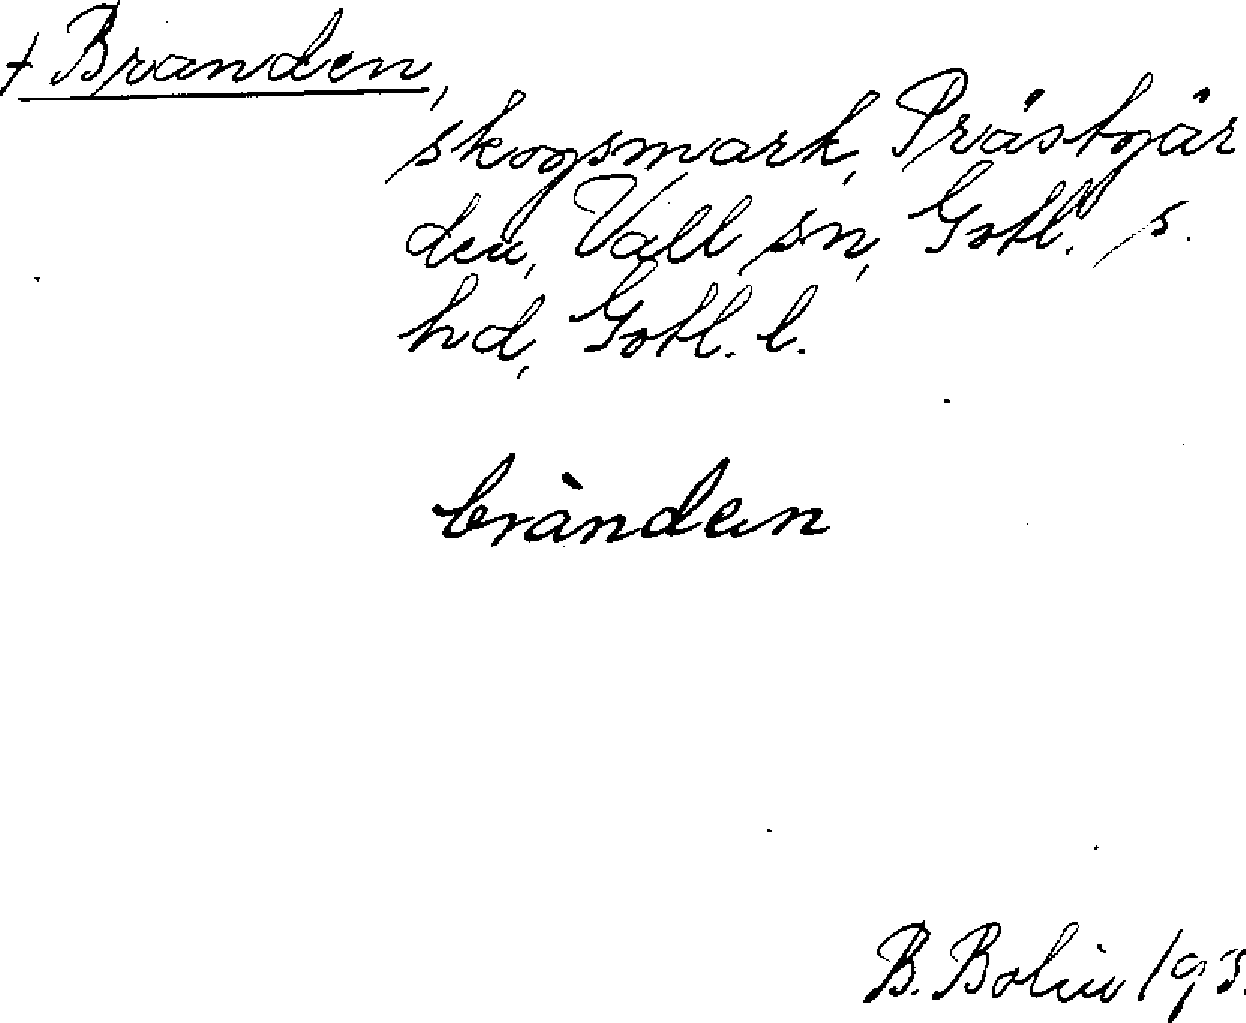 + Branden,
skogsmark, Prästgår
den, Vall sn, Gotl. s.
hd, Gotl. l.
bràndęn
B. Bolin 193.